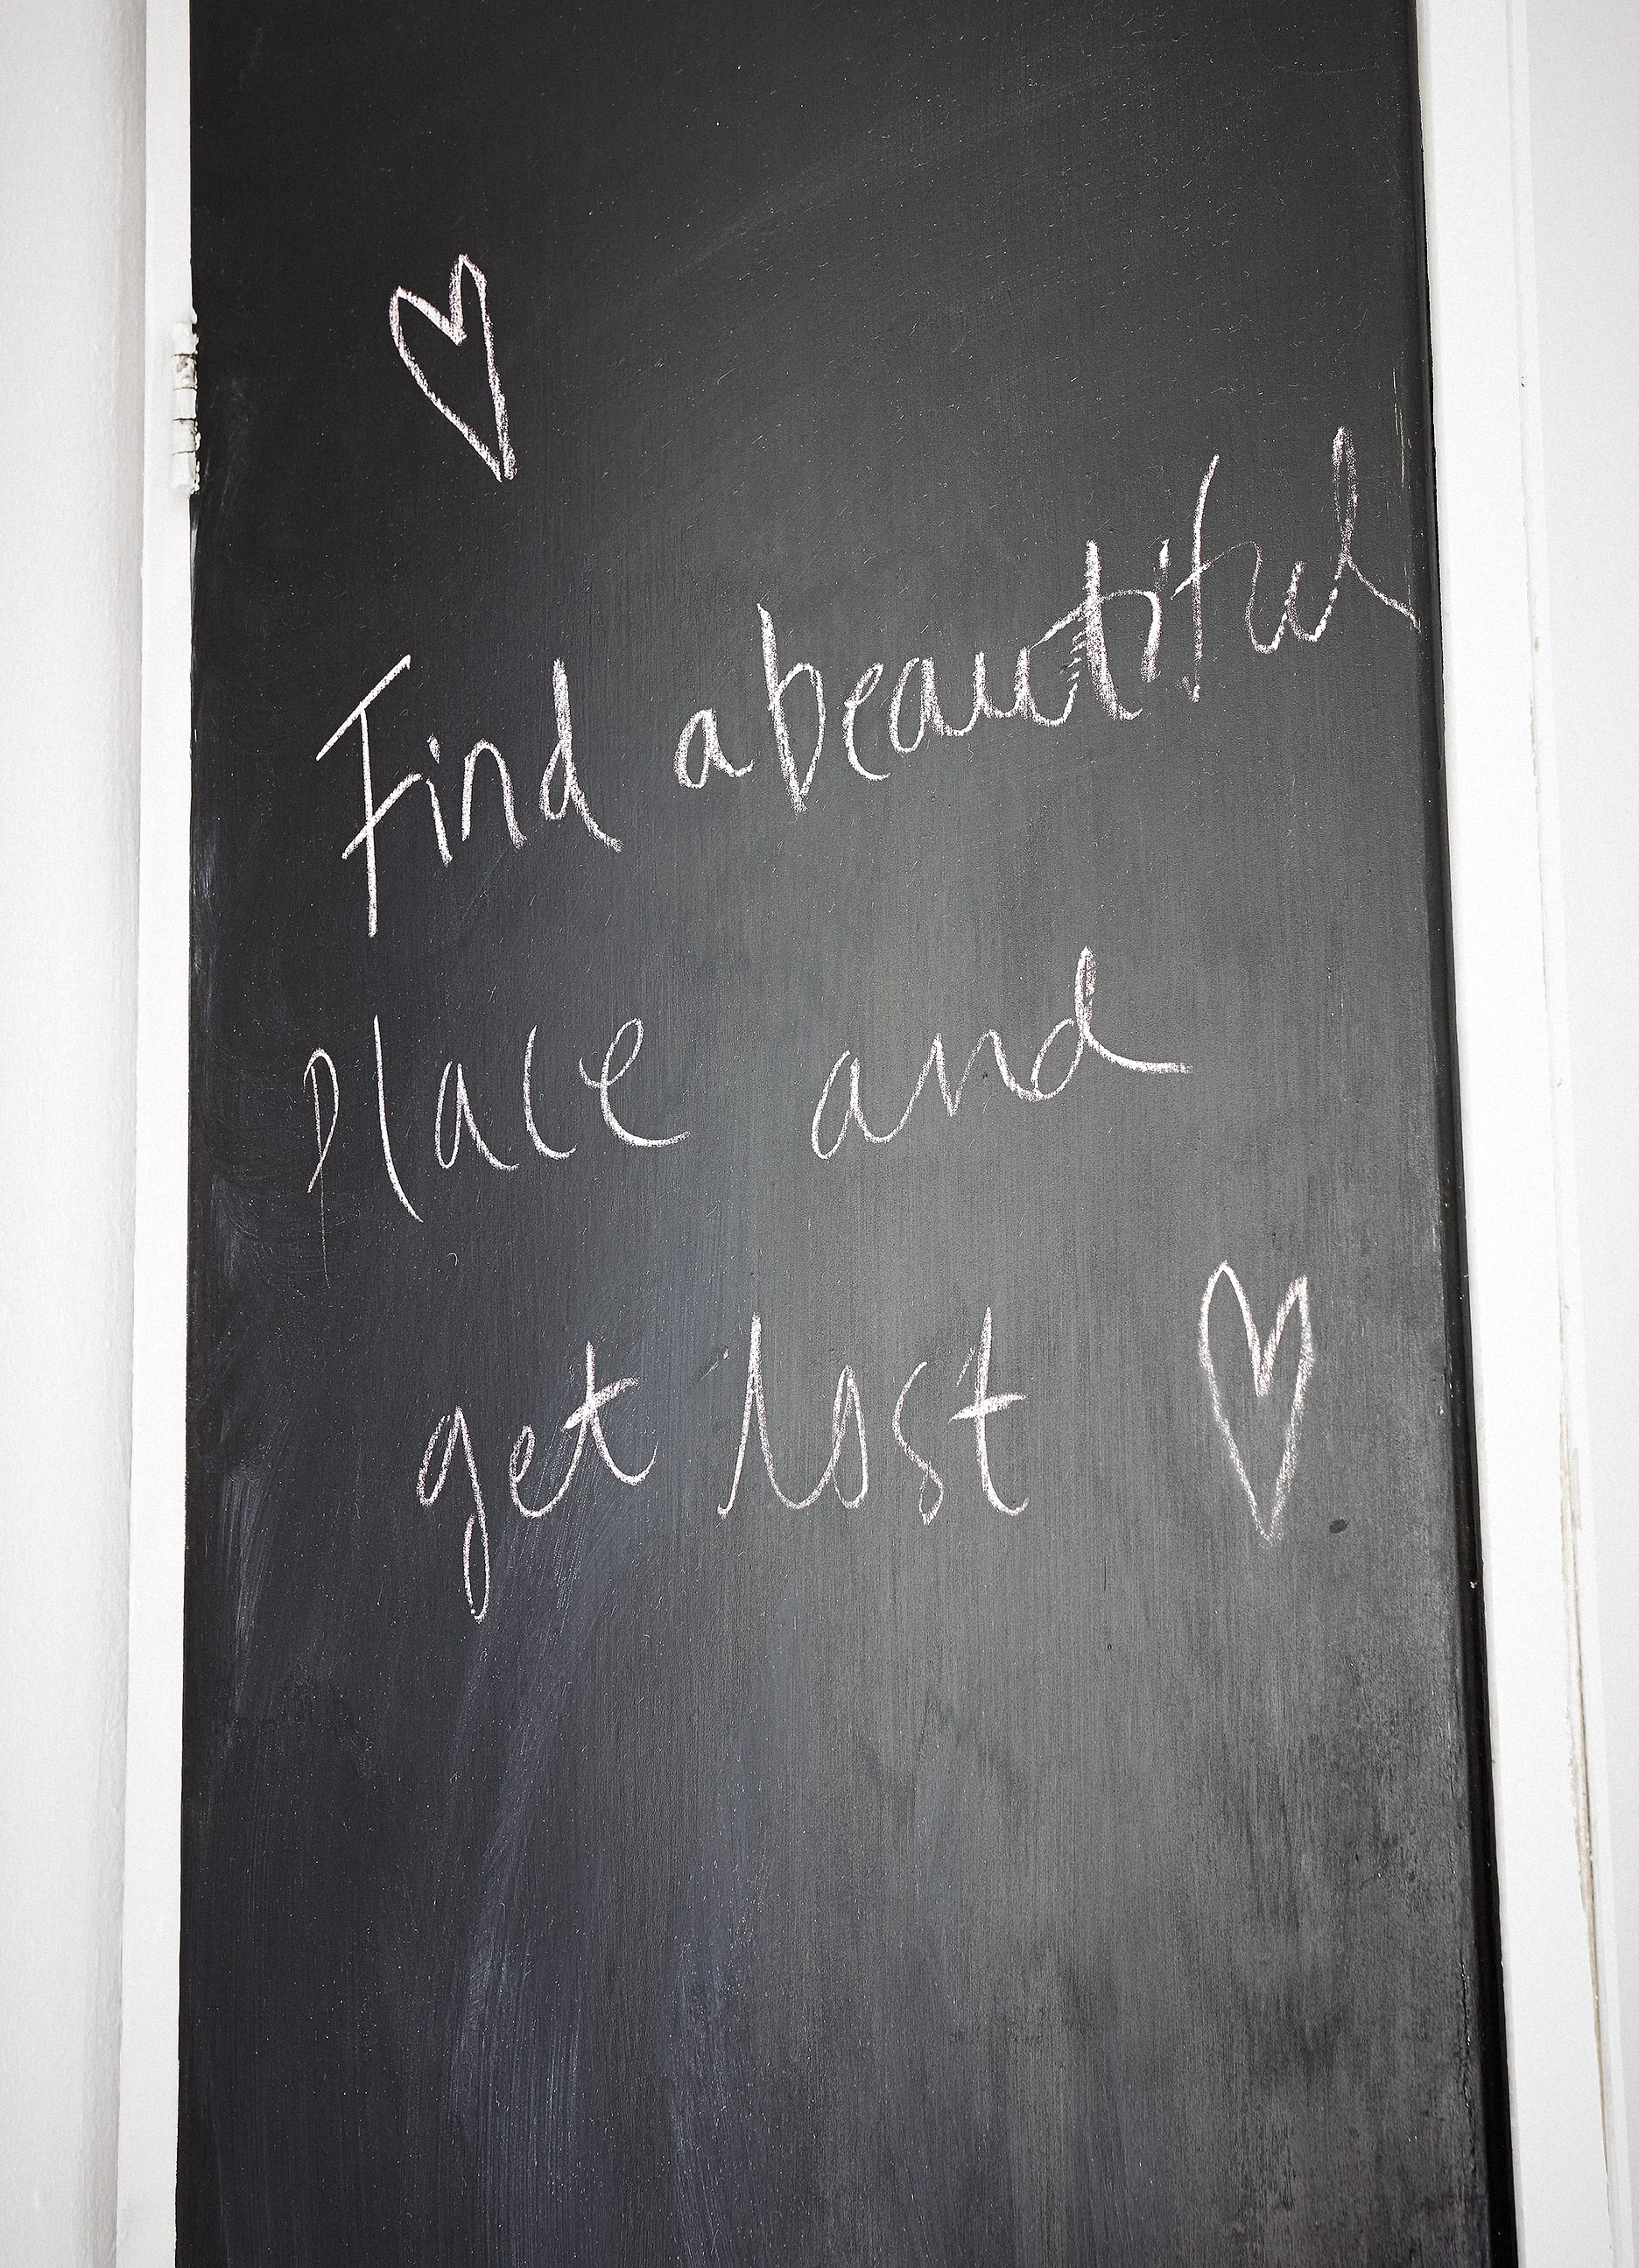 Find a beautiful
Place and
get lost